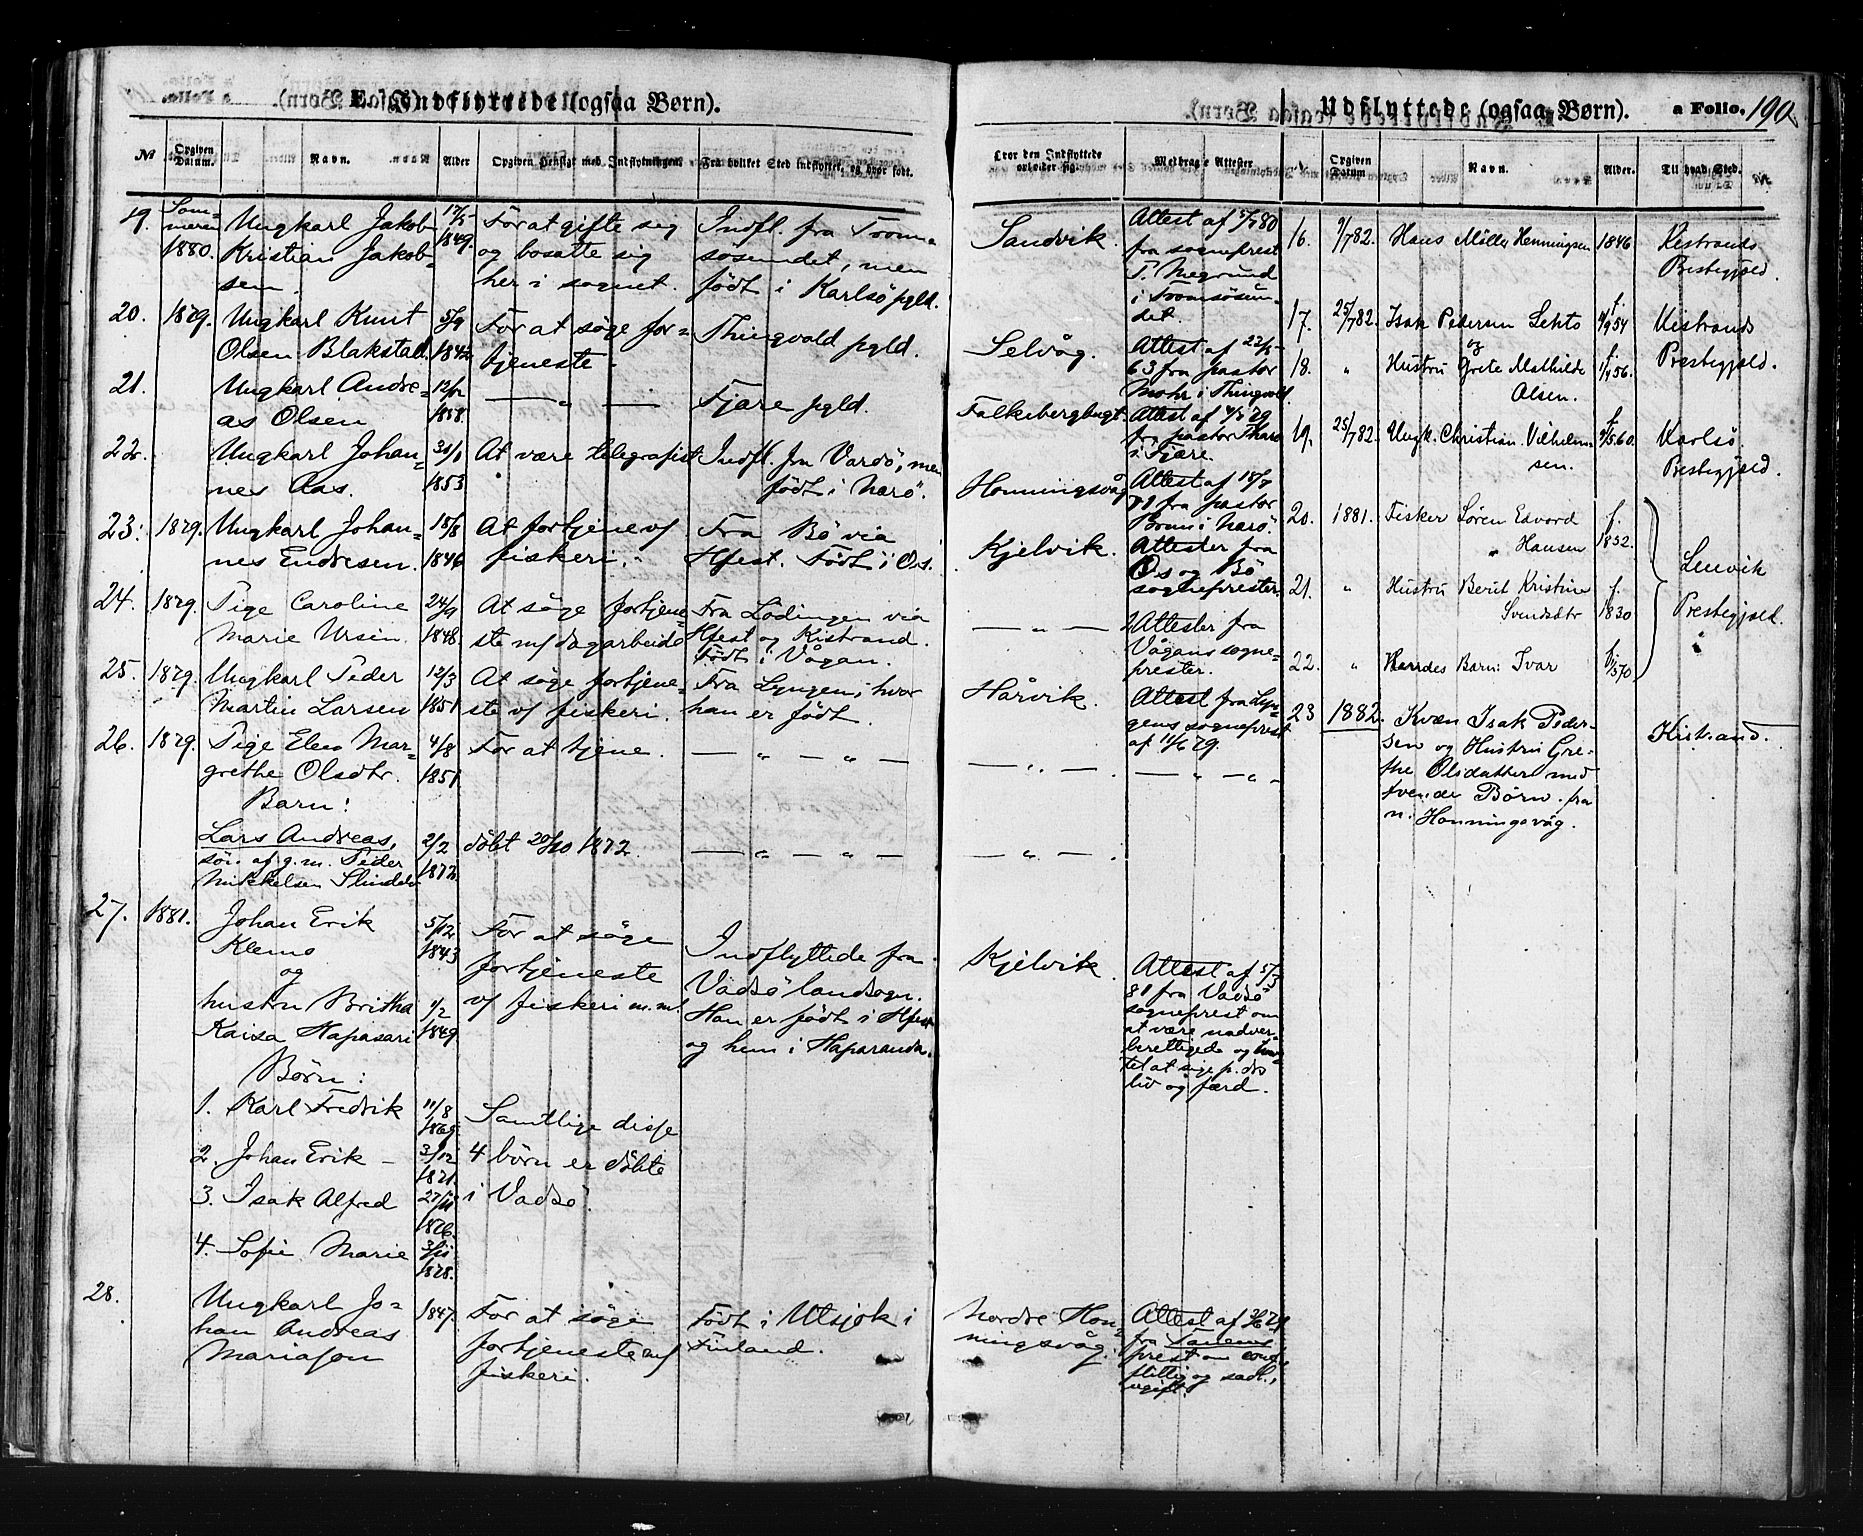 E. Indflyttede (ogsaa Børn).
Udflyttede (ogsaa Børn).
a Folio. 190
№ Opgiven Datum. Navn. Alder Opgiven Hensigt med Indflytningen. Fra hvilket Sted indflyttet, og hvor født.
Hvor den Indflyttede arbeider sig. Medbragte Attester
Opgiven Datum Navn. Alder. Til hvad Sted.
19. Som-
meren
1880.
Ungkarl Jakob
Kristian Jakob-
sen.
17/5
1849.
For at gifte sig
og bosætte sig
her i sognet.
Indfl. fra Tromsøsundet, men
født i Karlsö pgld.
Sandvik.
Attest af 5/7 80
fra sogneprest
i Tromsøsun-
det.
20. 1879. Ungkarl Knut
Olsen Blakstad.
5/9
1842
For at søge for-
tjeneste.
Thingvold pgld.
Selvåg.
Attest af
63 fra pastor
Mohr i Thingvold
21. Ungkarl Andre-
as Olsen
12/12
1858.
— „ —
Fjære pgld.
Falkebergbugt.
Attest af
fra pastor
i Fjære.
22. Ungkarl Johan-
nes Aas.
1853
At være telegrafist
Indfl. fra Vardö, men
født i Narö.
Honningsvåg
Attest af 18/7
fra pastor
Bruun i Narö.
23. 1879. Ungkarl Johan-
nes Endresen.
15/8
1846
At fortjene v/
fiskeri.
Fra Bö via
Hfest. Født i Os.
Kjelvik.
Attester fra
Os og Bö
sogneprester.
24. 1879. Pige Caroline
Marie Ursin.
24/9
1848.
At søge fortjene-
ste m/ dagarbeide
Fra Lödingen via
Hfest og Kistrand.
Født i Vågan.
— „ —
2 Attester fra
Vågans sogne-
prester.
25. 1879. Ungkarl Peder
Martin Larsen
12/3
1851
At søge fortjene-
ste v/ fiskeri.
Fra Lyngen, hvor
han er født.
Hårvik.
Attest fra Lyn-
gens sogneprest
af 11/6 79.
26. 1879. Pige Elen Mar-
grethe Olsdtr.
4/8
1851.
For at tjene.
— „ — „ —
— „ —
— „ — „ —
Barn:
Lars Andreas,
søn af g. m. Peder
Mikkelsen
2/2
1872.
døbt 20/10 1872.
— „ — „ —
— „ —
27. 1881. Johan Erik
Klemo
og
hustru Britha
Kaisa Hapasari
5/12
1843
1/2
1849.
For at søge
fortjeneste
v/ fiskeri m.m.
Indflyttede fra
Vadsö landsogn.
Han er født i Hfest
og hun i Haparanda.
Kjelvik.
Attest af 5/3
81 fra Vadsö
sogneprest om
at være nadver-
berettigede og
tet at sige p. ds
liv og færd.
Børn:
1. Karl Fredrik 11/8
1869.
2. Johan Erik — 3/12
1871.
3. Isak Alfred 27/11
1876.
4. Sofie Marie
1878.
Samtlige disse
4 børn er døbte
i Vadsö.
28. Ungkarl Jo-
han Andreas
Mariason
1847.
For at søge
fortjeneste v/
fiskeri.
Født i Utsjok i
Finland.
Nordre Hon-
ningsvåg.
Attest af
fra Tanens
prest om
flittig og
ugift.
16. 9/7 82. Hans Møller Henningsen 1846 Kistrands
Prestegjeld.
17. 25/7 82. Isak Pedersen Lehto
og
f. 54
Kistrands
Prestegjeld.
18. „ Hustru Grete Mathilde
Olsen.
f. 56.
19. 25/7 82. Ungk. Christian Vilhelm-
sen.
f. 60.
Karlsö
Prestegjeld.
20. 1881. Fisker Sören Edvord
Hansen
f.
1832.
21. „ Hustru Berit Kristine
Svendsdtr
f.
1830
22. „ Herrdes Barn: Ivar f. 70
Lenvik
Prestegjeld.
23 1882. Kvæn Isak Peder-
sen og Hustru Gre-
the Olsdatter med
tvende Børn fra
n. Honningsvåg.
Kistrand.